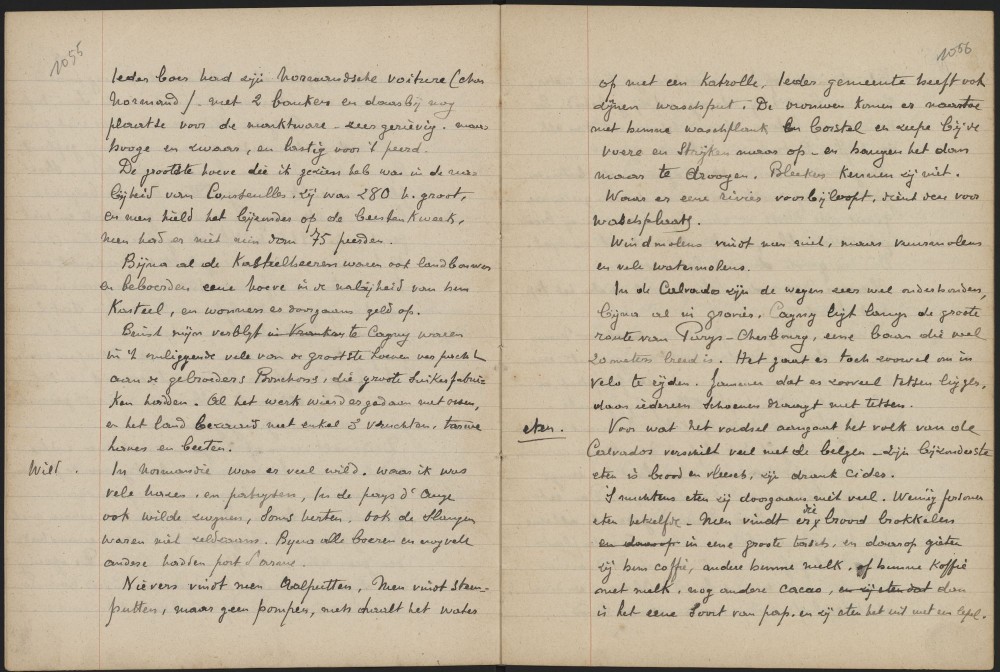 1055
Ieder boer had zijn Normandsche voiture (char
Normand) - met 2 banken en daarbij nog
plaatse voor de marktware - zeer gerievig. maar
hooge en zwaar, en lastig voor 't peerd.
De grootste hoeve die ik gezien heb was in de na-
bijheid van Courseulles. zij was 280 h. groot,
en men hield het bijzonder op de beestenkweek,
men had er niet min dan 75 peerden.
Bijna al de Kasteelheeren waren ook landbouwer
en beboerden eene hoeve in de nabijheid van hun
Kasteel, en wonnen er doorgaans geld op.
mijn verblijf te Cagny waren
in 't omliggende vele van de grootste hoeven verpacht
aan de gebroeders die groote Suikerfabrie-
ken hadden. Al het werk wierd er gedaan met ossen,
en het land bezaaid met enkel 3 vruchten, tarwe
haver en beeten.
Wild. In Normandie was er veel wild. waar ik was
vele hazen, en patrijzen, In de pays d'Auge
ook wilde zwijnen, Soms herten. Ook de Slangen
waren niet zeldzaam. Byna alle boeren en nog vele
andere hadden port d'arme.
Nievers vindt men Aalputten. Men vindt steen-
putten, maar geen pompen, men draalt het water
1056
op met een Katrolle. Ieder gemeente heeft ook
dijnen waschput. De vrouwen komen er naartoe
met hunne waschplank en borstel en zeepe bij de
voere en Strijken maar op - en hangen het dan
maar te droogen. Bleeken kennen zij niet.
Waar er eene rivier voorbijloopt, dient deze voor
waschplaats.
Windmolens vindt men niet, maar vuurmolens
en vele watermolens.
In de Calvados zijn de wegen zeer wel onderhouden,
bijna al in gravier. Cagny ligt langs de groote
route van Parys-Cherbourg, eene baan die wel
20 meters breed is. Het gaat er toch zoowel om in
velo te rijden. Jammer dat er zooveel tetsen liggen,
daar iedereen Schoenen draagt met tetsen.
eten. Voor wat het voedsel aangaat het volk van de
Calvados verschilt veel met de belgen - zijn bijzonderste
eten is brood en vleesch, zijn drank cider.
's nuchtens eten zij doorgaans niet veel. Weinig personen
eten hetzelfde - Men vindt er die brood brokkelen
en daarop in eene groote tasch, en daarop gieten
zij hun coffie, andere hunne melk, of hunne Koffie
met melk, nog andere cacao, en zij eten dat dan
is het eene Soort van pap. en zij eten het uit met een lepel.